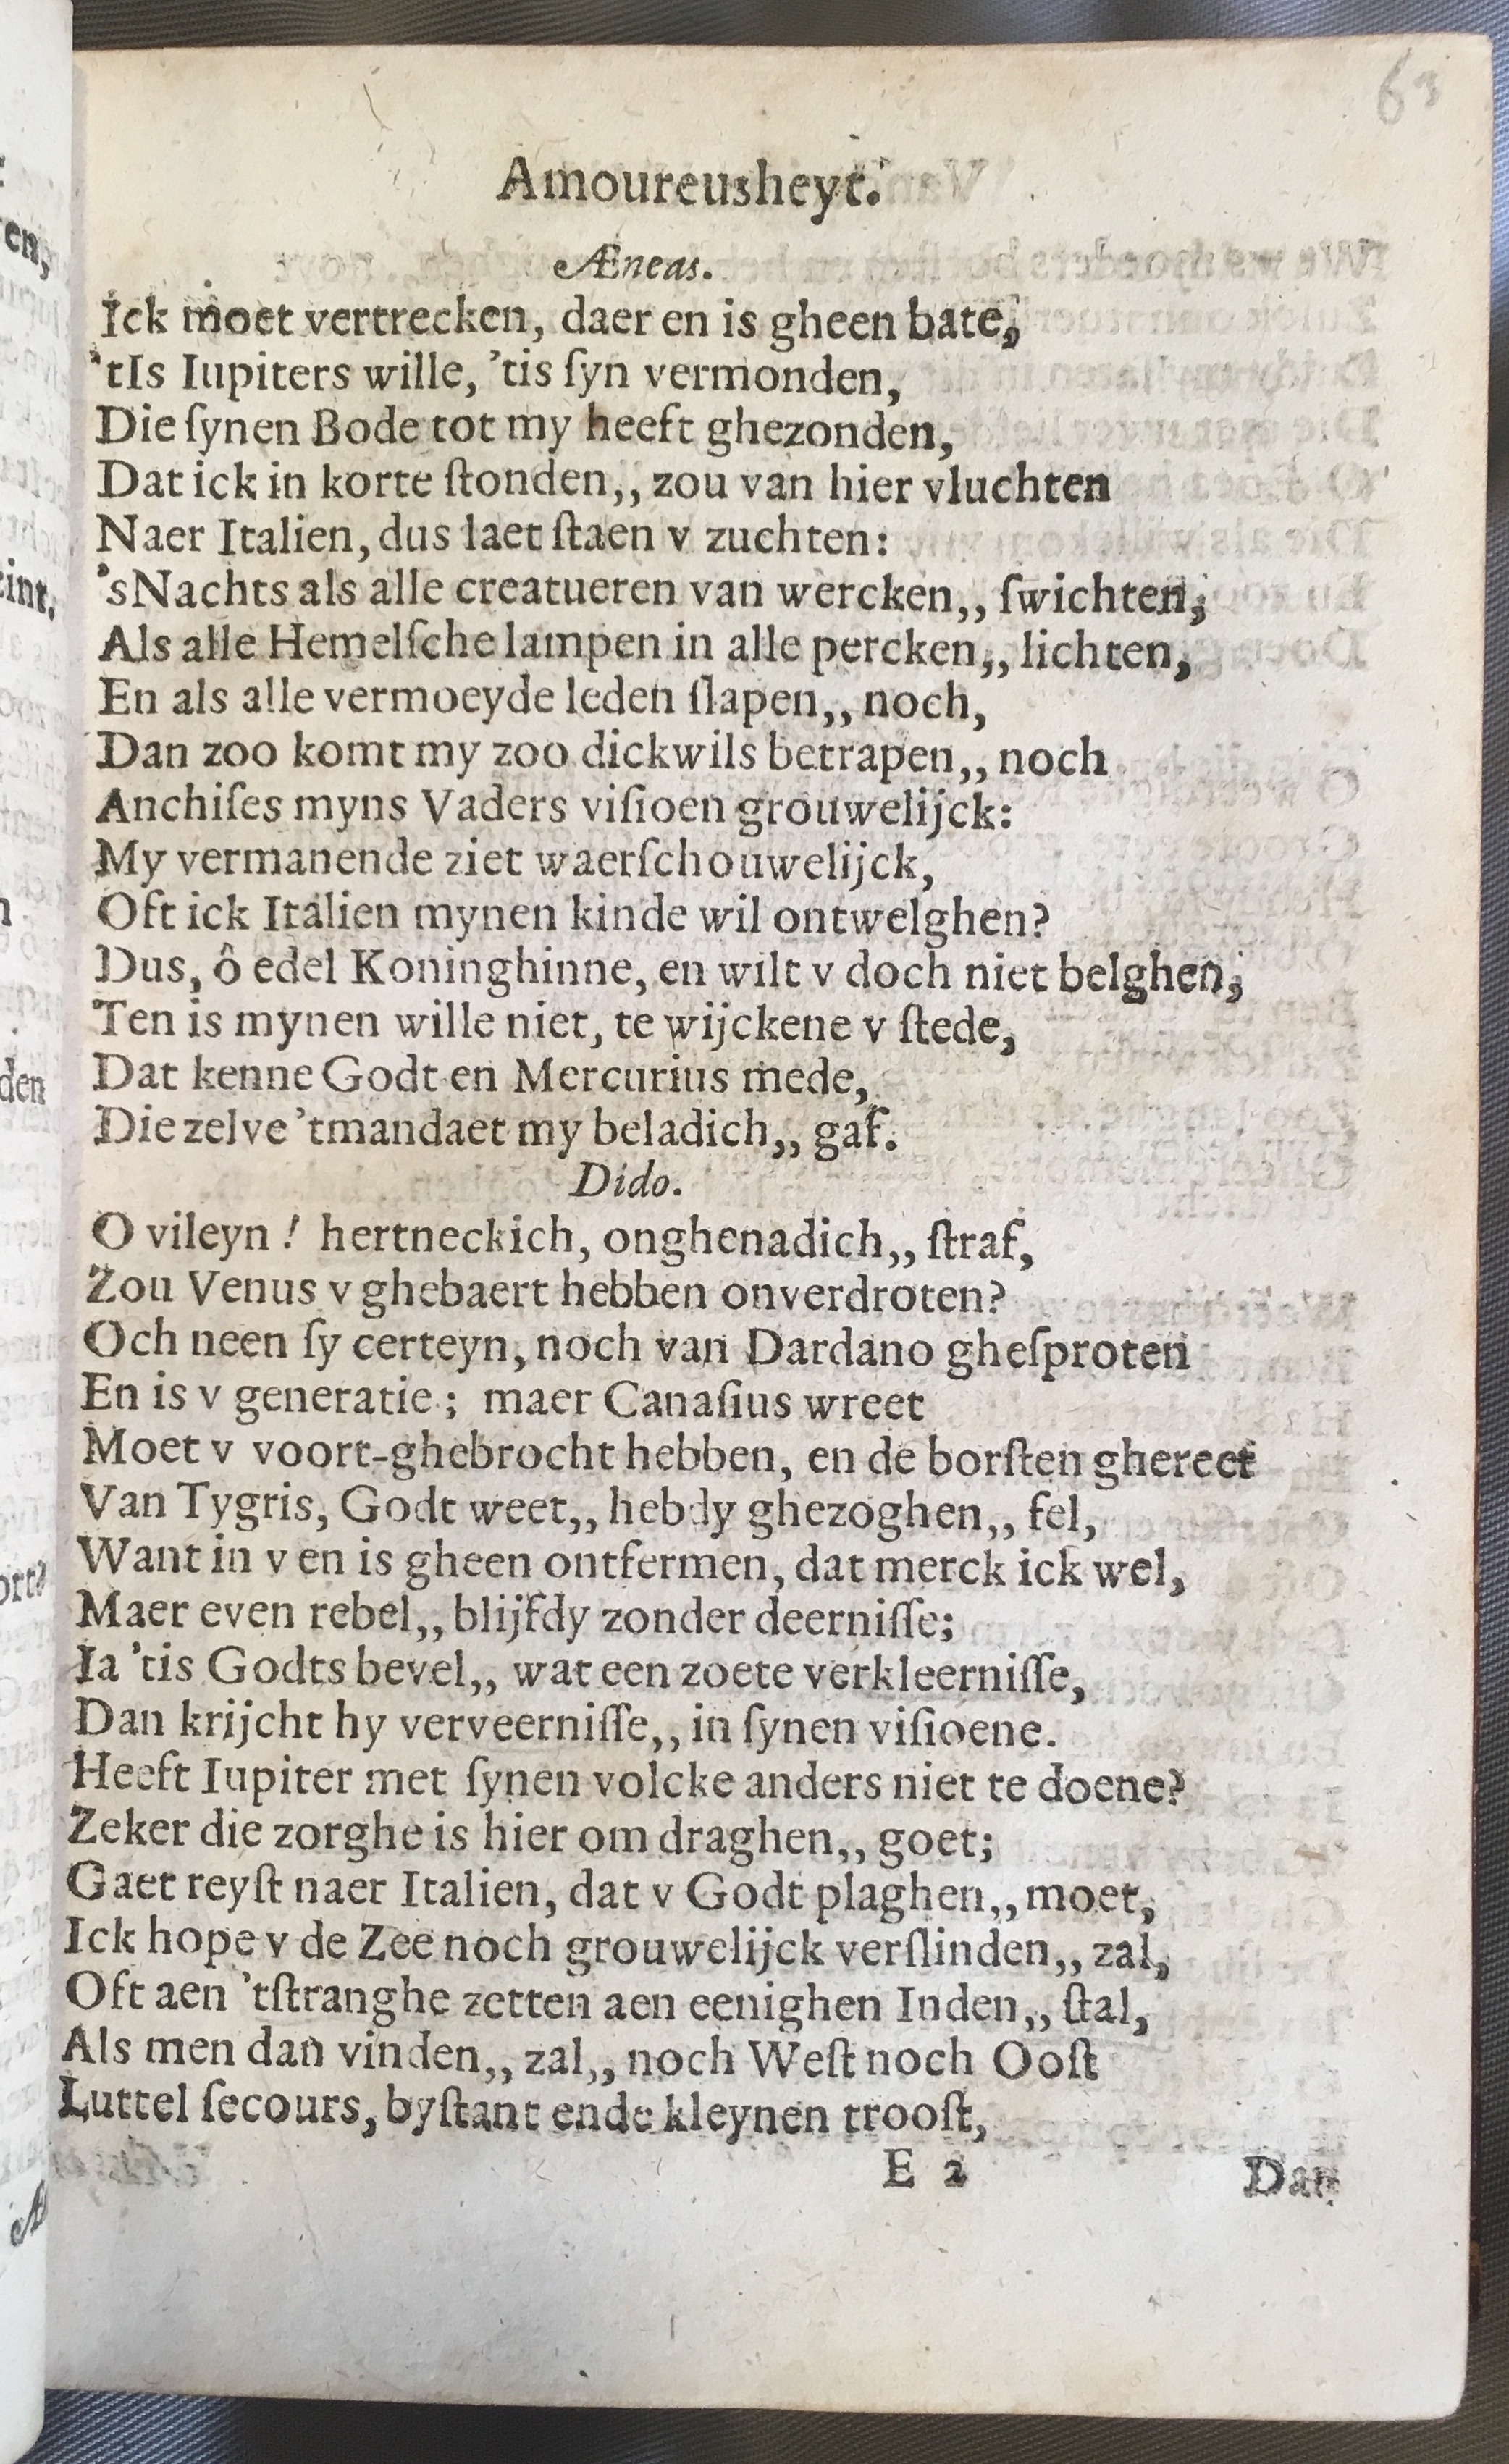 63
Amoureusheyt.
Æneas.
Ick moet vertrecken, daer en is gheen bate,
'tIs Iupiters wille, 'tis ſyn vermonden,
Die ſynen Bode tot my heeft ghezonden,
Dat ick in korte ſtonden,, zou van hier vluchten
Naer Italien, dus laet ſtaen v zuchten:
'sNachts als alle creatueren van wercken,, ſwichten,
Als alle Hemelſche lampen in alle percken,, lichten,
En als alle vermoeyde leden ſlapen,, noch,
Dan zoo komt my zoo dickwils betrapen,, noch
Anchiſes myns Vaders viſioen grouwelijck:
My vermanende ziet waerſchouwelijck,
Oft ick Italien mynen kinde wil ontwelghen?
Dus, ô edel Koninghinne, en wilt v doch niet belghen,
Ten is mynen wille niet, te wijckene v ſtede,
Dat kenne Godt en Mercurius mede,
Die zelve 'tmandaet my beladich,, gaf.
Dido.
O vileyn! hertneckich, onghenadich,, ſtraf,
Zou Venus v ghebaert hebben onverdroten?
Och neen ſy certeyn, noch van Dardano gheſproten
En is v generatie; maer Canaſius wreet
Moet v voort-ghebrocht hebben, en de borſten ghereet
Van Tygris, Godt weet,, hebdy ghezoghen,, fel,
Want in v en is gheen ontfermen, dat merck ick wel,
Maer even rebel,, blijfdy zonder deerniſſe;
Ia 'tis Godts bevel,, wat een zoete verkleerniſſe,
Dan krijcht hy verveerniſſe,, in ſynen viſioene.
Heeft Iupiter met ſynen volcke anders niet te doene?
Zeker die zorghe is hier om draghen,, goet;
Gaet reyſt naer Italien, dat v Godt plaghen,, moet,
Ick hope v de Zee noch grouwelijck verſlinden,, zal,
Oft aen 'tſtranghe zetten aen eenighen Inden,, ſtal,
Als men dan vinden,, zal,, noch Weſt noch Ooſt
Luttel ſecours, byſtant ende kleynen trooſt,
E 2 Dan